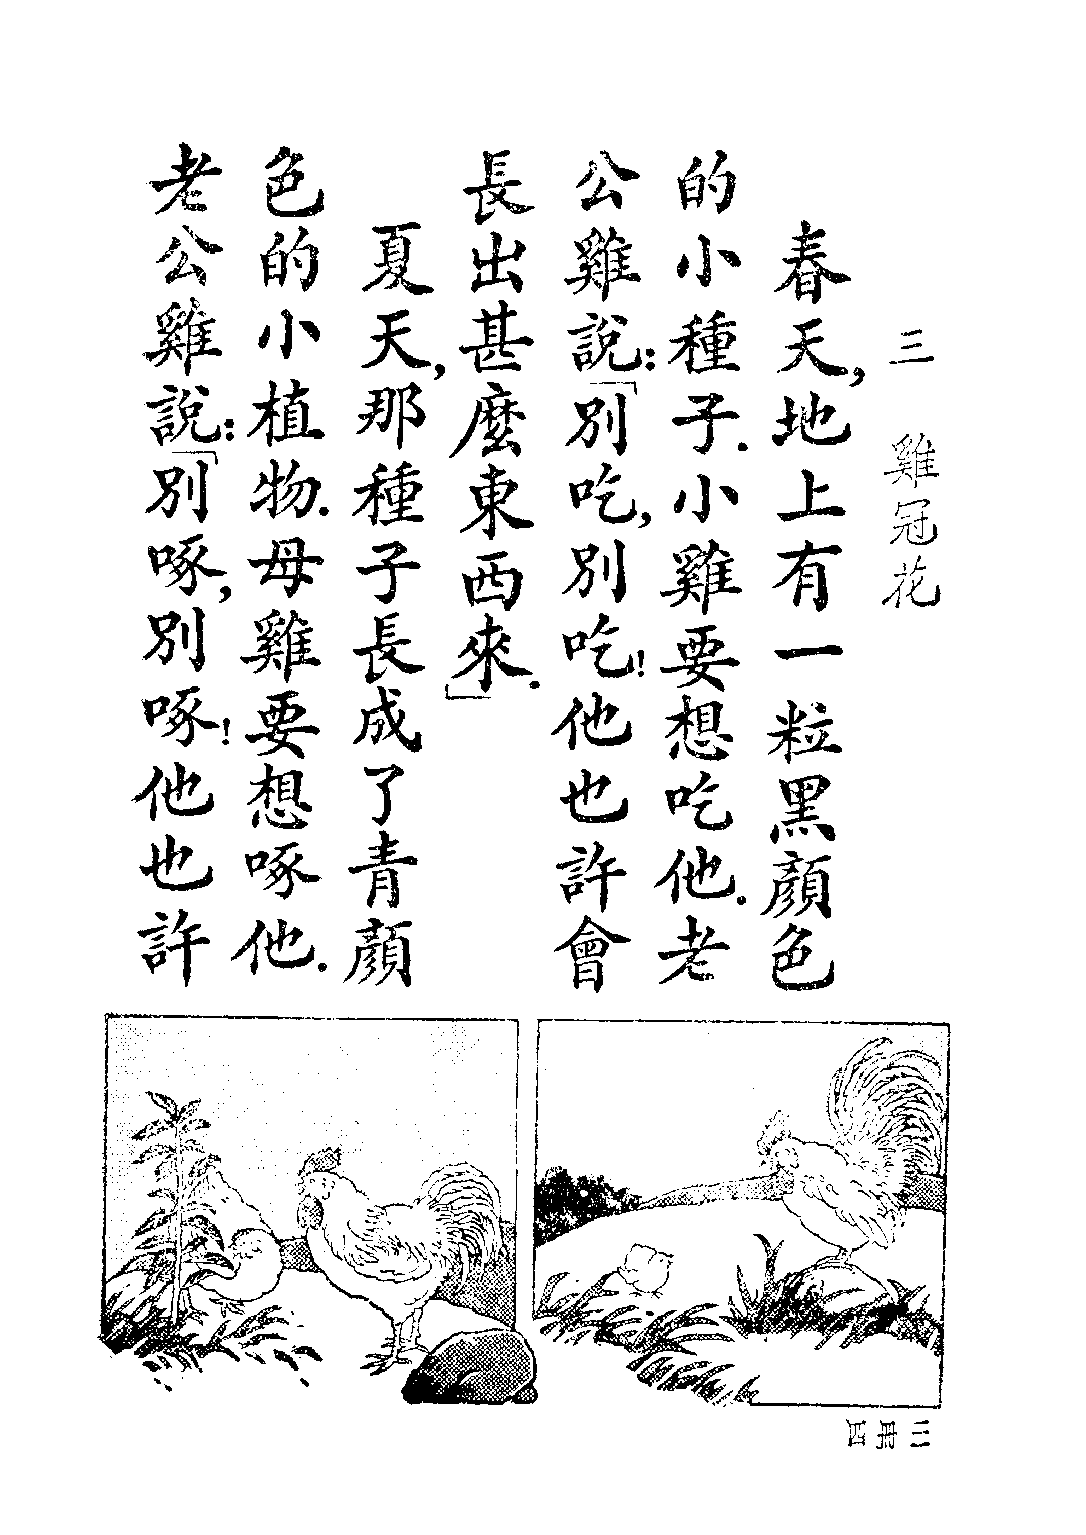 三 雞冠花
春天,地上有一粒黑顏色
的小種子.小雞要想吃他.老
公雞說:「別吃,別吃!他也許會
長出甚麼東西來.」
夏天,那種子長成了青顏
色的小植物.母雞要想啄他.
老公雞說:「別啄,別啄!他也許
三冊 四